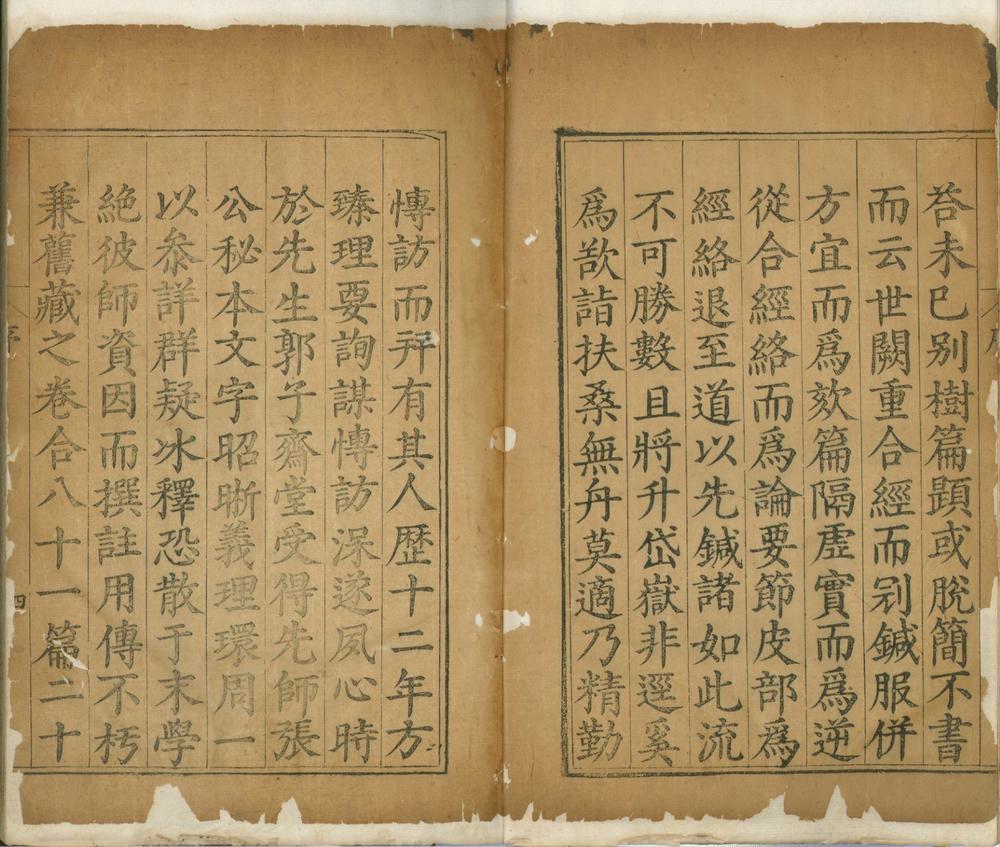 荅未已別樹篇題或脫簡不書
而云世闕重合經而冠鍼服併
方宜而爲欬篇隔虛實而爲逆
從合經絡而爲論要節皮部爲
經絡退至道以先鍼諸如此流
不可勝數且將升岱嶽非逕奚
爲欲詣扶桑無舟莫適乃精勤
慱訪而并有其人歴十二年方
臻理要詢謀慱訪深遂夙心時
於先生郭子齋堂受得先師張
公秘本文字昭晰義理環周一
以叅詳群疑冰釋恐散于末學
絶彼師資因而撰註用傳不朽
兼舊藏之卷合八十一篇二十
四